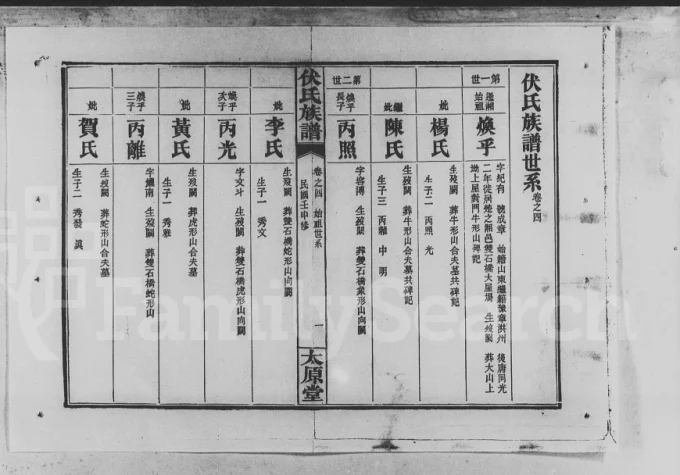 伏氏族譜世系 卷之四
第一世
遷湘始祖
煥乎
字紀有 號成章 始籍山東繼籍豫章洪州 後唐同光
二年徙居楚之湘邑雙石橋大屋場 生歿闕 葬大山上
坳上屋對門牛形山碑記
妣
楊氏
生歿闕 葬牛形山合夫墓共碑記
生子二 丙照 光
繼妣
陳氏
生歿闕 葬牛形山合夫墓共碑記
生子三 丙離 中 明
第二世
煥乎長子
丙照
字容博 生歿闕 葬雙石橋象形山向闕
伏氏族譜
卷之四 始祖世系
民國壬申修
一
太原堂
妣
李氏
生歿闕 葬雙石橋蛇形山向闕
生子一 秀文
煥乎次子
丙光
字文斗 生歿闕 葬雙石橋虎形山向闕
妣
黃氏
生歿闕 葬虎形山合夫墓
生子一 秀雅
煥乎三子
丙離
字繼南 生歿闕 葬雙石橋蛇形山
妣
賀氏
生歿闕 葬蛇形山合夫墓
生子二 秀發 眞
FamilySearch